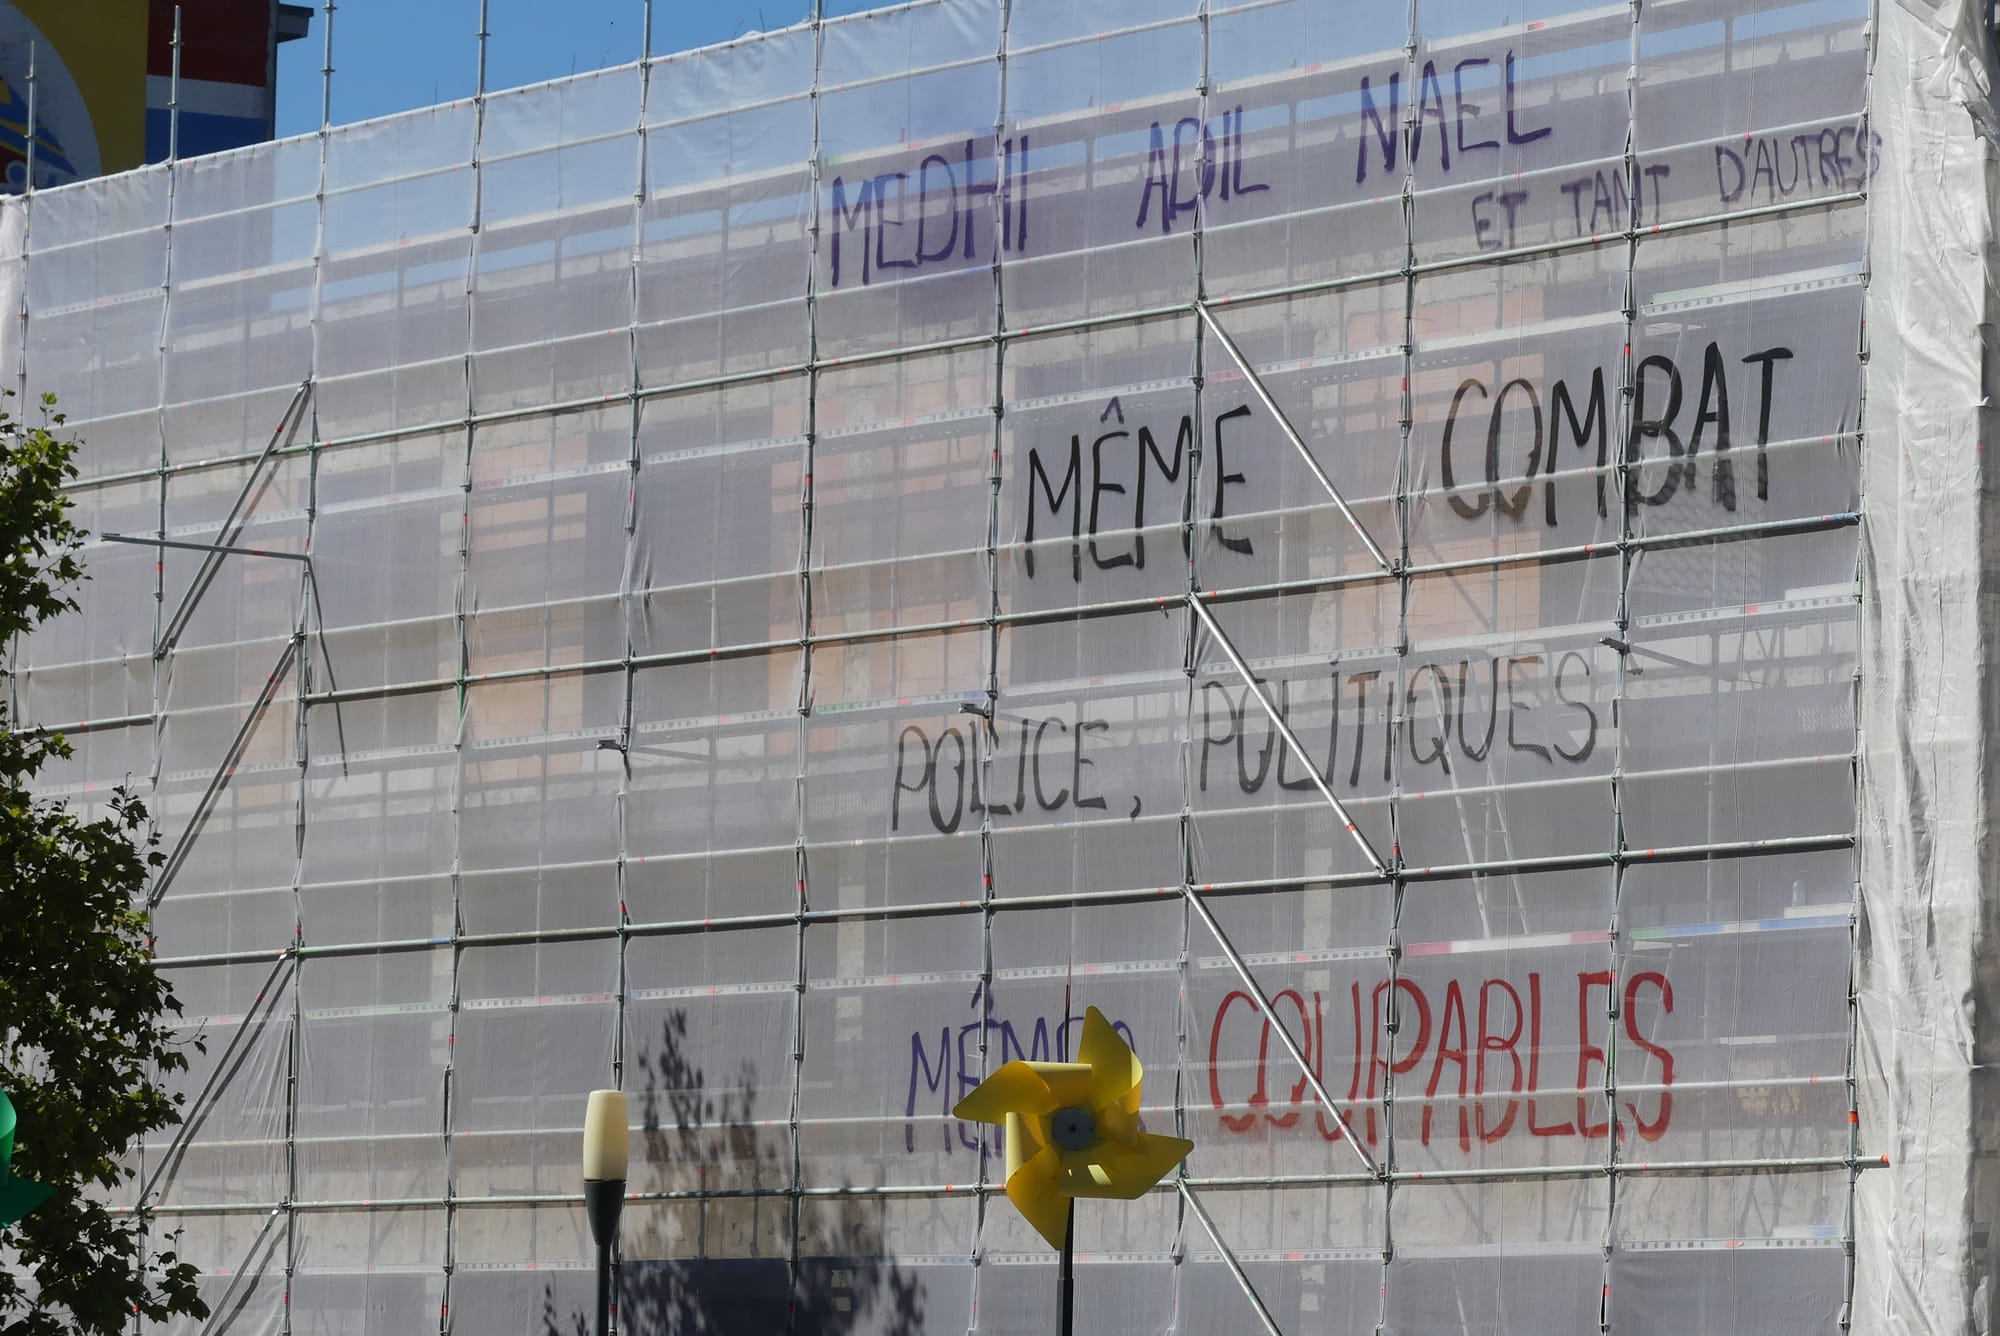 MEDHI ADIL NAEL
ET TANT D'AUTRES
MÊME COMBAT
POLICE, POLITIQUES
MÊMES COUPABLES